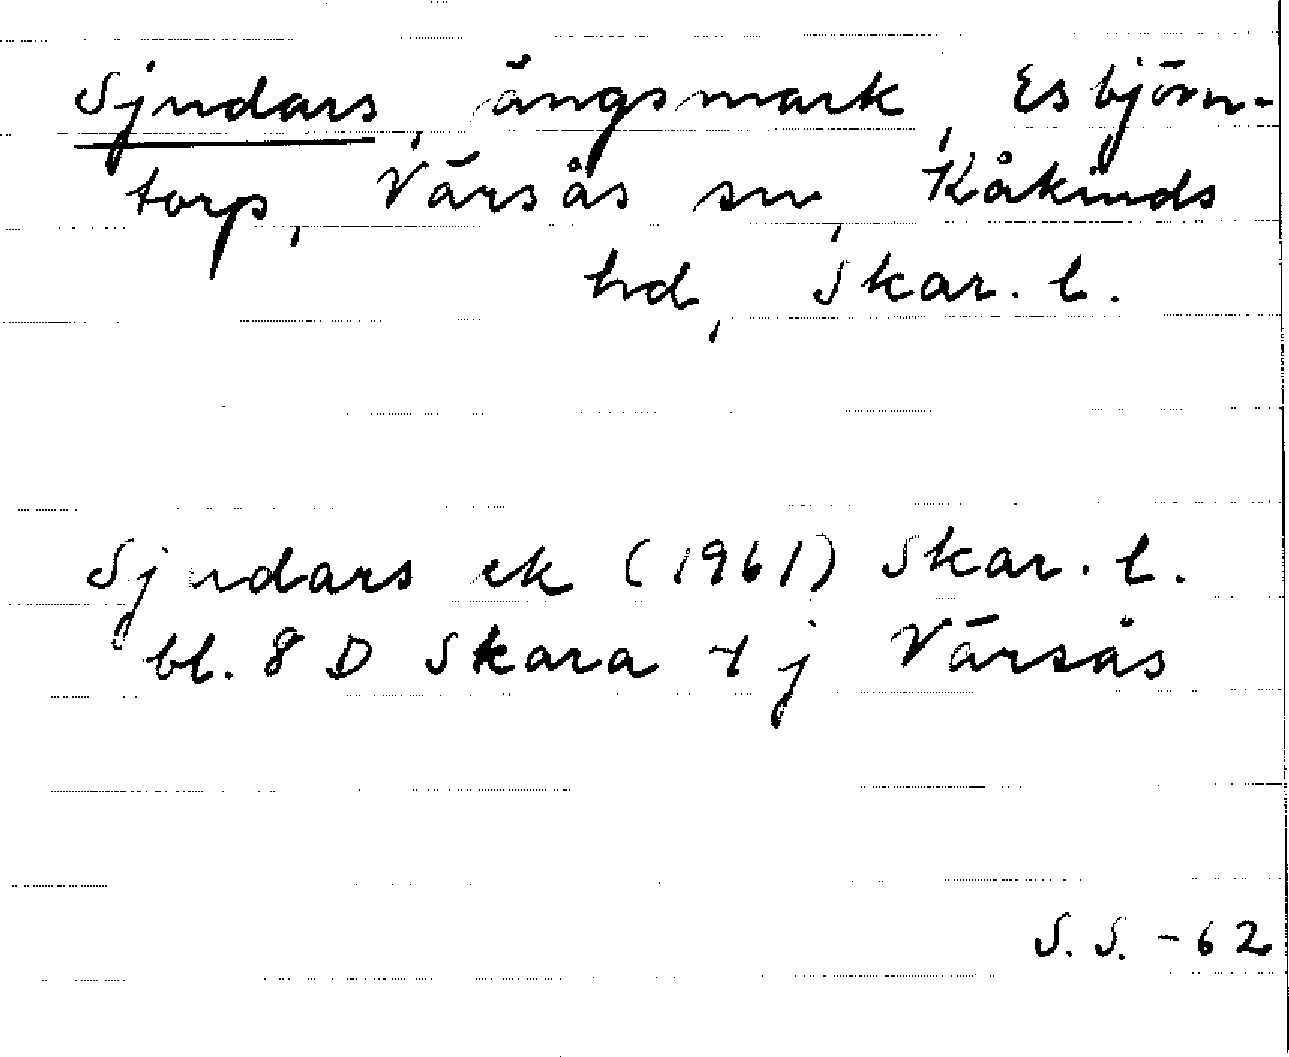 Sjndars, ängsmark, Esbjörn-
torp, Värsås sn, Kåkinds
hd, Skar. l.
Sjndars ek (1961) Skar. l.
bl. 8 D Skara 4 j Värsås
S. S. -62